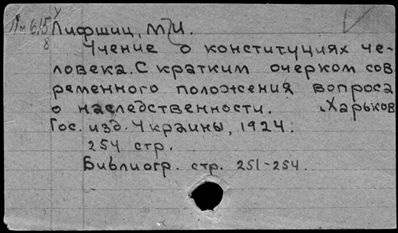 Лифшиц, М.И.
Учение о конституциях че-
ловека. С кратким очерком сов
ременного положения вопроса
о наследственности. Харьков
Гос. изд. Украины, 1924.
254 стр.
Библиогр. стр. 251-254.